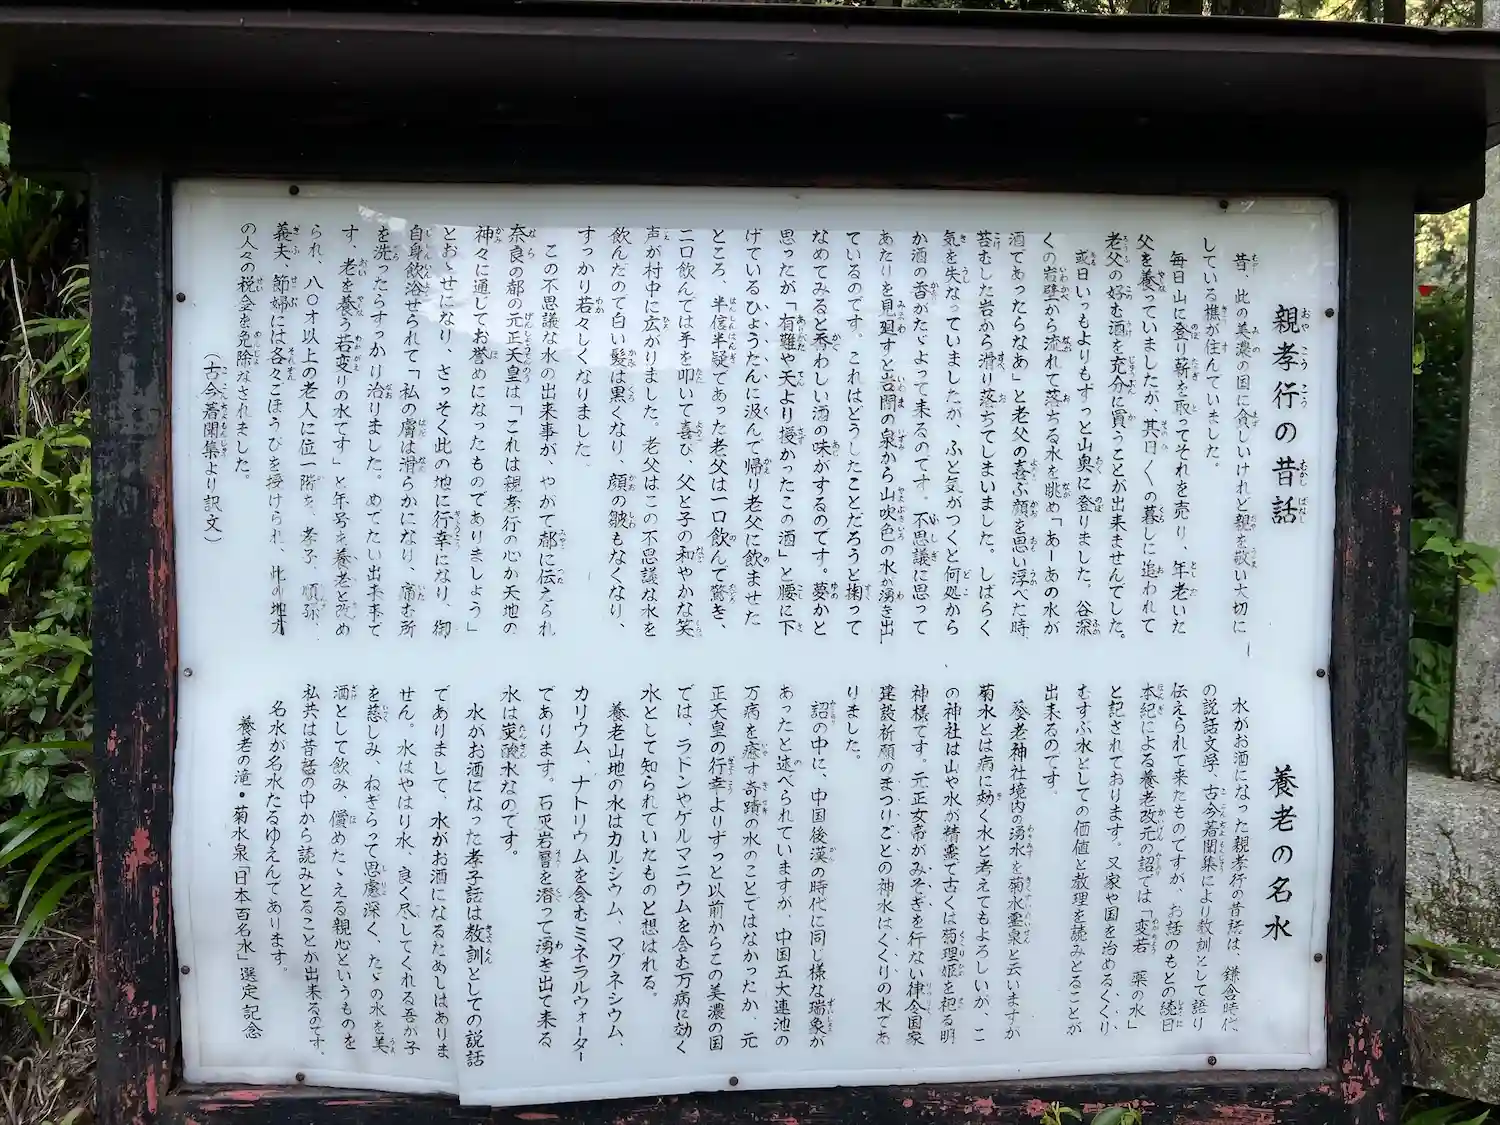 親孝行の昔話
昔 此の美濃の国に貧しいけれど親を敬い大切に
している樵が住んでいました。
毎日山に登り薪を取ってそれを売り、年老いた
父を養っていましたが、其日〱の暮しに追われて
老父の好む酒を充分に買うことが出来ませんでした。
或日いつもよりもずっと山奥に登りました。谷深
くの岩壁から流れて落ちる水を眺め「あーあの水が
酒であったらなあ」と老父の喜ぶ顔を思い浮べた時、
苔むした岩から滑り落ちてしまいました。しばらく
気を失なっていましたが、ふと気がつくと何処から
か酒の香がたゞよって来るのです。不思議に思って
あたりを見廻すと岩間の泉から山吹色の水が湧き出
ているのです。これはどうしたことだろうと掬って
なめてみると香わしい酒の味がするのです。夢かと
思ったが「有難や天より授かったこの酒」と腰に下
げているひょうたんに汲んで帰り老父に飲ませた
ところ、半信半疑であった老父は一口飲んで驚き、
二口飲んでは手を叩いて喜び、父と子の和やかな笑
声が村中に広がりました。老父はこの不思議な水を
飲んだので白い髪は黒くなり、顔の皺もなくなり、
すっかり若々しくなりました
この不思議な水の出来事が、やがて都に伝えられ
奈良の都の元正天皇は「これは親孝行の心が天地の
神々に通じてお誉めになったものでありましょう」
とおゝせになり、さっそく此の地に行幸になり、御
自身飲浴せられて「私の膚は滑らかになり、痛む所
を洗ったらすっかり治りました。めでたい出来事で
す、老を養う若変りの水です」と年号を養老と改め
られ、八〇才以上の老人に位一階を、孝子、順孫、
義夫、節婦には各々ごほうびを授けられ、此の地方
の人々の税金を免除なされました。
(古今著聞集より訳文)
養老の名水
水がお酒になった親孝行の昔話は、鎌倉時代
の説話文学、古今著聞集により教訓として語り
伝えられて来たものですが、お話のもとの続日
本紀による養老改元の詔では「変若 薬の水」
と記されております。又家や国を治めるくくり、
むすぶ水としての価値と教理を読みとることが
出来るのです。
養老神社境内の湧水を菊水霊泉と云いますが
菊水とは病に効く水と考えてもよろしいが、こ
の神社は山や水が精霊で古くは菊理姫を祀る明
神様です。元正女帝がみそぎを行ない律令国家
建設祈願のまつりごとの神水はくくりの水であ
りました。
詔の中に、中国後漢の時代に同じ様な瑞象が
あったと述べられていますが、中国五大連池の
万病を癒す奇蹟の水のことではなかったか、元
正天皇の行幸よりずっと以前からこの美濃の国
では、ラドンやゲルマニウムを含む万病に効く
水として知られていたものと想はれる。
養老山地の水はカルシウム、マグネシウム、
カリウム、ナトリウムを含むミネラルウォーター
であります。石灰岩層を潜って湧き出て来る
水は炭酸水なのです。
水がお酒になった孝子話は教訓としての説話
でありまして、水がお酒になるためしはありま
せん。水はやはり水、良く尽してくれる吾が子
を慈しみ、ねぎらって思慮深く、たゞの水を美
酒として飲み、償めたゝえる親心というものを
私共は昔話の中から読みとることが出来るのです。
名水が名水たるゆえんであります。
養老の滝・菊水泉「日本百名水」選定記念